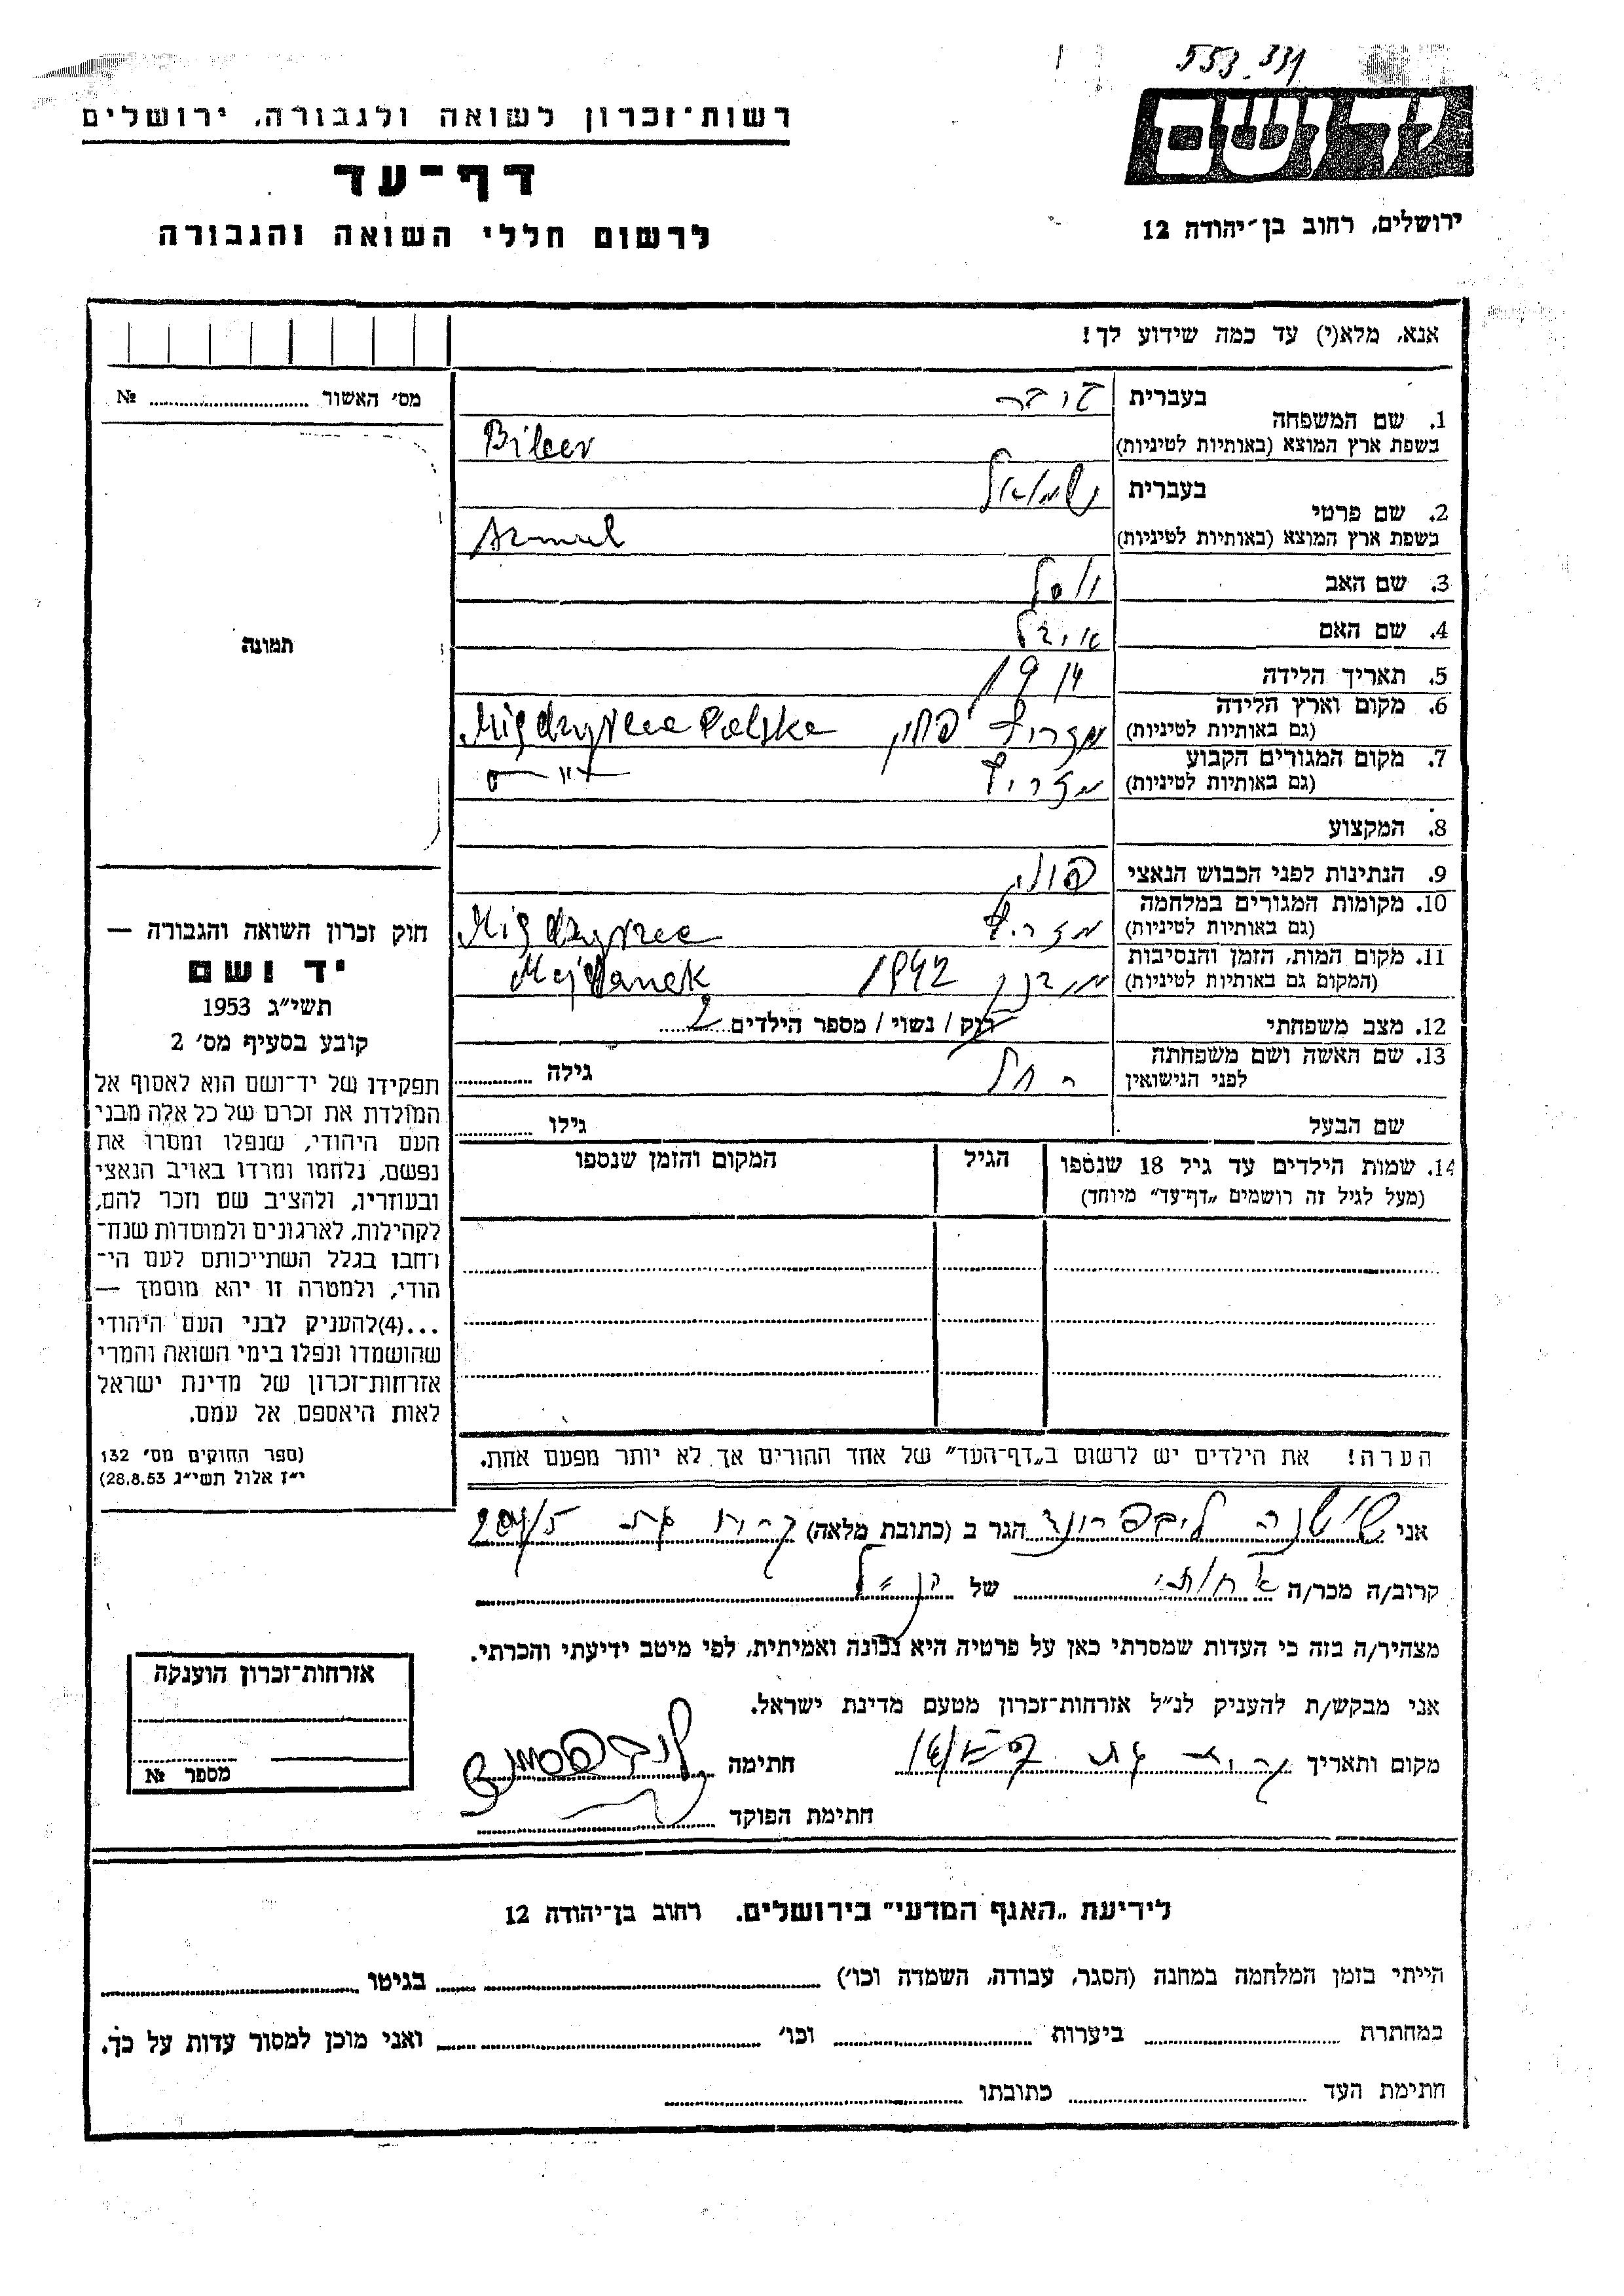 553-331
רשות־זכרון לשואה ולגבורה, ירושלים
ד ושם
דף־עד
ירושלים, רחוב בן־יהודה 12
לרשום חללי השואה והגבורה
אנא, מלא(י) עד כמה שידוע לך!
מס׳ האשור №
1. שם המשפחה בעברית
בשפת ארץ המוצא (באותיות לטיניות)
2. שם פרטי בעברית שמואל
בשפת ארץ המוצא (באותיות לטיניות)
3. שם האב
4. שם האם
5. תאריך הלידה 1914
6. מקום וארץ הלידה
(גם באותיות לטיניות) מזריץ פולין Międzyrzec Polska
7. מקום המגורים הקבוע
(גם באותיות לטיניות) מזריץ
8. המקצוע
9. הנתינות לפני הכבוש הנאצי
10. מקומות המגורים במלחמה
(גם באותיות לטיניות) מזריץ Międzyrzec
11. מקום המות, הזמן והנסיבות
(המקום גם באותיות לטיניות) 1942 Majdanek
12. מצב משפחתי רוק / נשוי / מספר הילדים 2
13. שם האשה ושם משפחתה
לפני הנישואין רחל גילה
שם הבעל גילו
14. שמות הילדים עד גיל 18 שנספו
(מעל לגיל זה רושמים „דף־עד״ מיוחד)
הגיל
המקום והזמן שנספו
הערה! את הילדים יש לרשום ב„דף־העד״ של אחד ההורים אך לא יותר מפעם אחת.
תמונה
חוק זכרון השואה והגבורה —
יד ושם
תשי״ג 1953
קובע בסעיף מס׳ 2
תפקידו של יד־ושם הוא לאסוף אל
המולדת את זכרם של כל אלה מבני
העם היהודי, שנפלו ומסרו את
נפשם, נלחמו ומרדו באויב הנאצי
ובעוזריו, ולהציב שם וזכר להם,
לקהילות, לארגונים ולמוסדות שנח־
רבו בגלל השתייכותם לעם הי־
הודי, ולמטרה זו יהא מוסמך —
...(4)להעניק לבני העם היהודי
שהושמדו ונפלו בימי השואה והמרי
אזרחות־זכרון של מדינת ישראל
לאות היאספם אל עמם.
(ספר החוקים מס׳ 132
י״ז אלול תשי״ג 28.8.53)
אני הגר ב (כתובת מלאה) קרית גת 204/5
קרוב/ה מכר/ה של הנ״ל
מצהיר/ה בזה כי העדות שמסרתי כאן על פרטיה היא נכונה ואמיתית, לפי מיטב ידיעתי והכרתי.
אני מבקש/ת להעניק לנ״ל אזרחות־זכרון מטעם מדינת ישראל.
מקום ותאריך קרית גת חתימה
חתימת הפוקד
אזרחות־זכרון הוענקה
מספר №
לידיעת „האגף המדעי״ בירושלים. רחוב בן־יהודה 12
הייתי בזמן המלחמה במחנה (הסגר, עבודה, השמדה וכו׳) בגיטו
במחתרת ביערות וכו׳ ואני מוכן למסור עדות על כך.
חתימת העד כתובתו